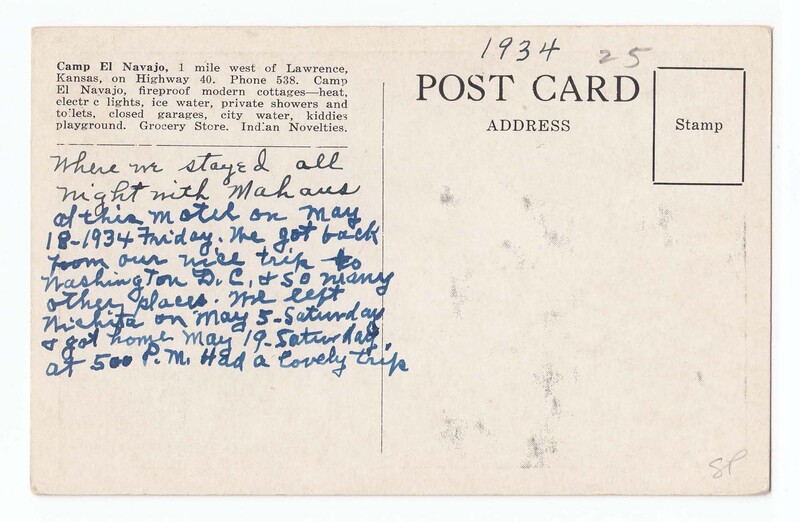 1934 25
Camp El Navajo, 1 mile west of Lawrence,
Kansas, on Highway 40. Phone 538. Camp
El Navajo, fireproof modern cottages—heat,
electr c lights, ice water, private showers and
toilets, closed garages, city water, kiddies
playground. Grocery Store. Indian Novelties.
POST CARD
ADDRESS
Stamp
Where we stayed all
night with Mahans
at this Motel on May
18-1934 Friday. We got back
from our nice trip to
Washington D.C. & so many
other places. We left
Wichita on May 5-Saturday
& got home May 19-Saturday,
at 500 P.M. Had a lovely trip
SP